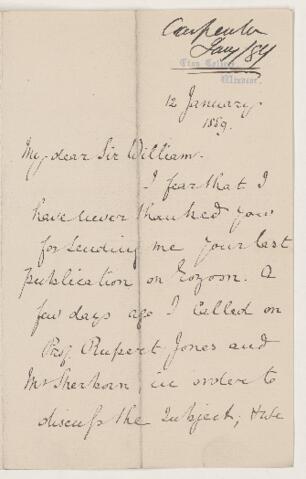 Carpenter
Jany /89
Eton College,
Windsor.
12 January.
1889.
My dear Sir William.
I fear that I
have never thanked you
for sending me your last
publication on Eozoon. A
few days ago I called on
Prof. Rupert Jones and
Mr Sherborn, in order to
discuss the subject; & we